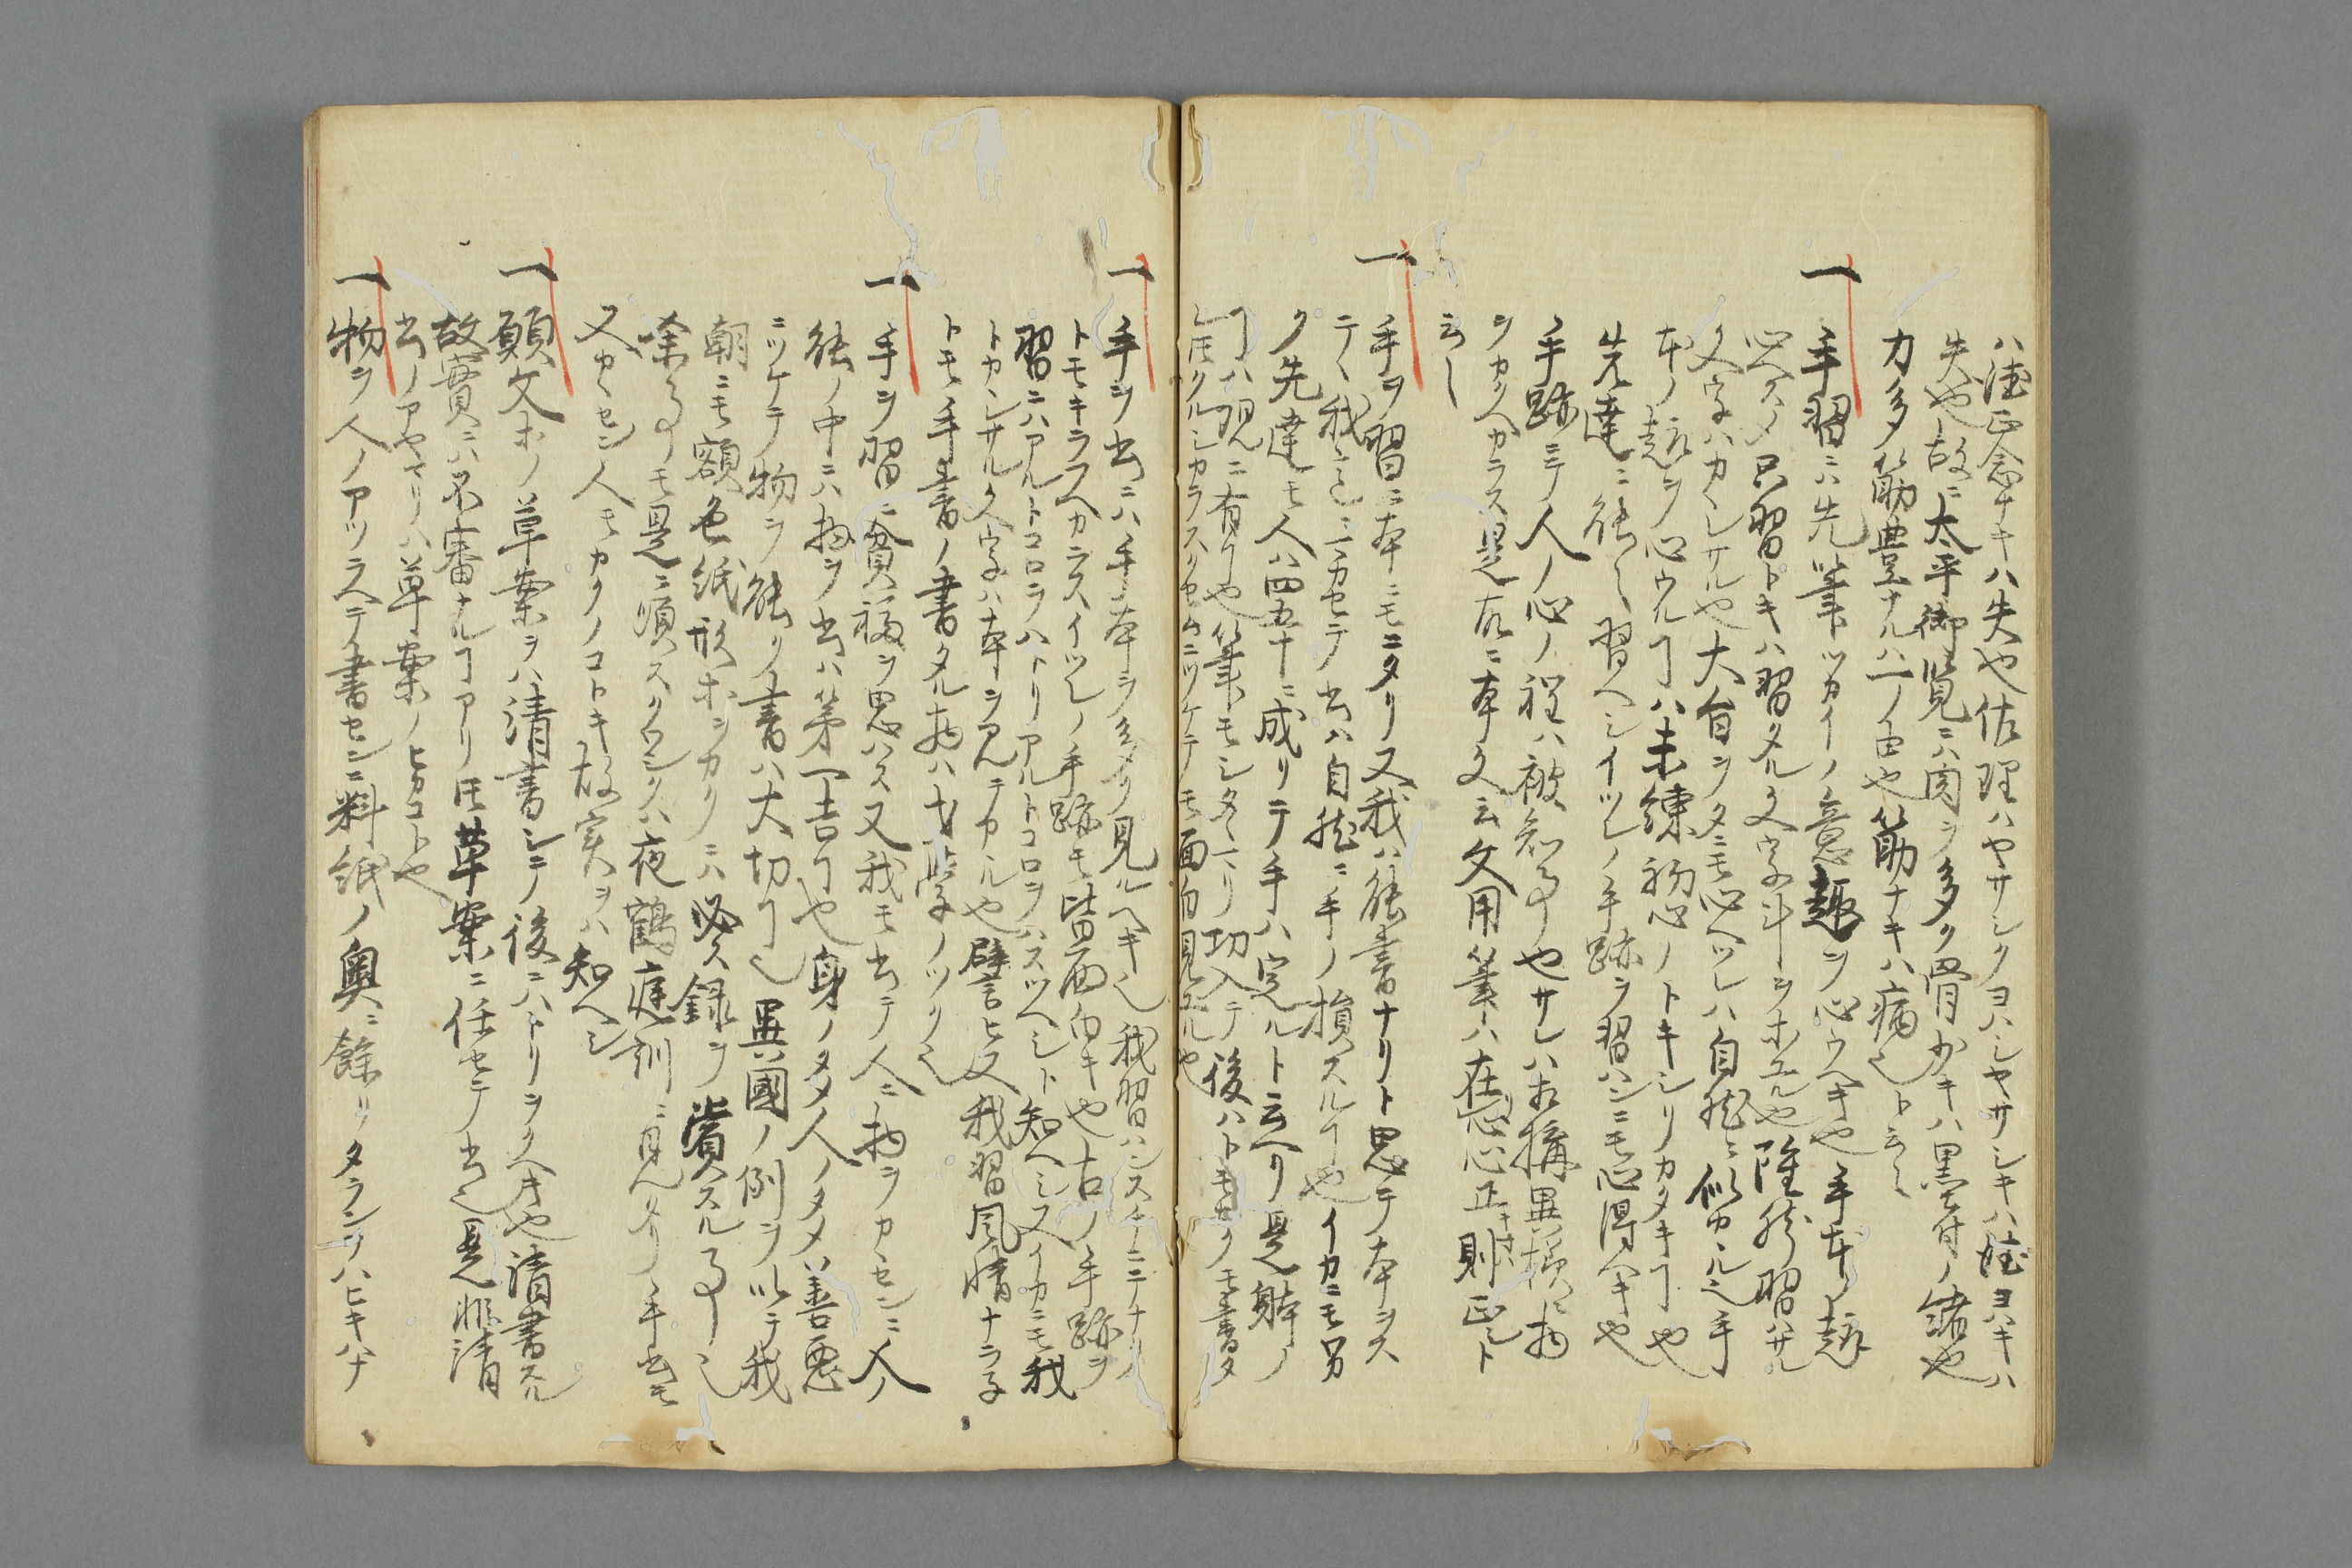 ハ強正念ナキハ失也佐理ハヤサシクヨハシヤサシキハ強ヨハキハ
失也故ニ太平御覧ニハ肉ヲ多ク骨少キハ墨猪也
力多ク筋豊ナルハ一ノ由也筋ナキハ病也ト云々
一手習ニハ先筆ツカイノ意趣ヲ心ウヘキ也手本ノ趣
心ヘスメ只習トキハ習タル文字斗ヲホエル也雖然習ハサル
文字ハカヽレサル也大旨ヲタニモ心ヘツレハ自然ニ似カヽル也手
本ノ趣ヲ心ウルヿハ未練初心ノトキシリカタキヿ也
先達ニ能々習ヘシイツレノ手跡ヲ習ハンニモ心得ヘキ也
手跡ニテ人ノ心ノ程ハ被知事也サレハ相構異様ニ物
ヲカクヘカラス是故ニ本文云文用筆ハ在心心正キ則正シト
云々
一手ヲ習ニ本ニモニタリ又我ハ能書ナリト思テ本ヲス
テヽ我意ニマカセテ書ハ自然ニ手ノ損スルヿ也イカニモ男
ク先達モ人ハ四五十ニ成リテ手ハ定ルト云ヘリ是躰ノ
ヿハ現ニ有リ也筆モシタヽマリ切入テ後ハトモカクモ書タ
レ𪜈クルシカラスクセムニツケテモ面白見エル也
一手ヲ書ニハ手本ヲ多ク見ルヘキ也我習ハンスチニテナリ
トモキラフヘカラスイツレノ手跡モ皆面白キ也古ノ手跡ヲ
習ニハアルトコロヲハトリアルトコロヲハスツヘシト知ヘシ又イカニモ我
トカヽレサル文字ハ本ヲ見テカヽル也譬ヒ又我習風情ナラ子
トモ手書ノ書タル物ハ才學ノツク也
一手ヲ習ニ貧福ヲ思ハス又我モ書テ人ニ物ヲカヽセンニ人ノ
能ノ中ニハ物ヲ書ハ第一ノ吉ヿ也身ノタメ人ノタメ善悪
ニツケテ物ヲ能ク書ハ大切ヿ也異國ノ例ヲ以テ我
朝ニモ額色紙形ホンカクニハ必ス録ヲ賞スル事也
余事モ是ニ順スクワシクハ夜鶴庭訓ニ見ヘタリ手書モ
又カヽセン人モカクノコトキ故実ヲハ知ヘシ
一願文ホノ草案ヲハ清書シテ後ニハトリヲクヘキ也清書スル
故實ニハ不審ナルヿアリ𪜈草案ニ任セテ書也是非清
書ノアヤマリハ草案ノヒカコト也
一物ヲ人ノアツラヘテ書センニ料紙ノ奥ニ餘リタランヲハヒキハナ